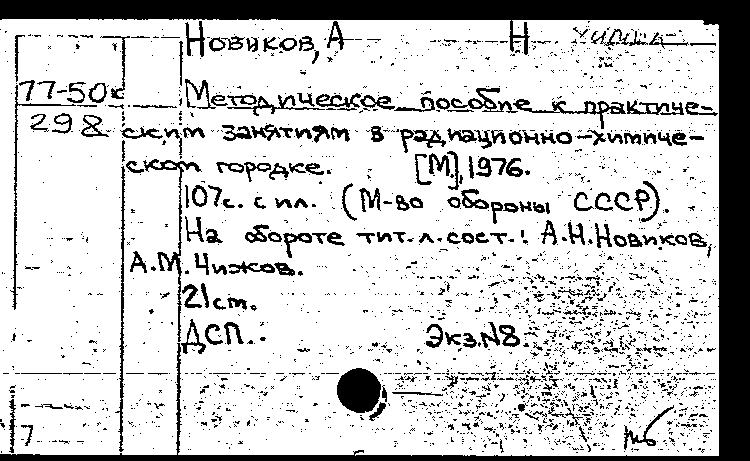 Новиков, А Н Химия
77-50к Методическое пособие к практиче-
298 ским занятиям в радиационно-химиче-
ском городке. [М], 1976.
107с. с ил. (М-во обороны СССР).
На обороте тит.л. сост.: А.Н.Новиков,
А.М.Чижов.
21см.
ДСП. Экз.N8.
7